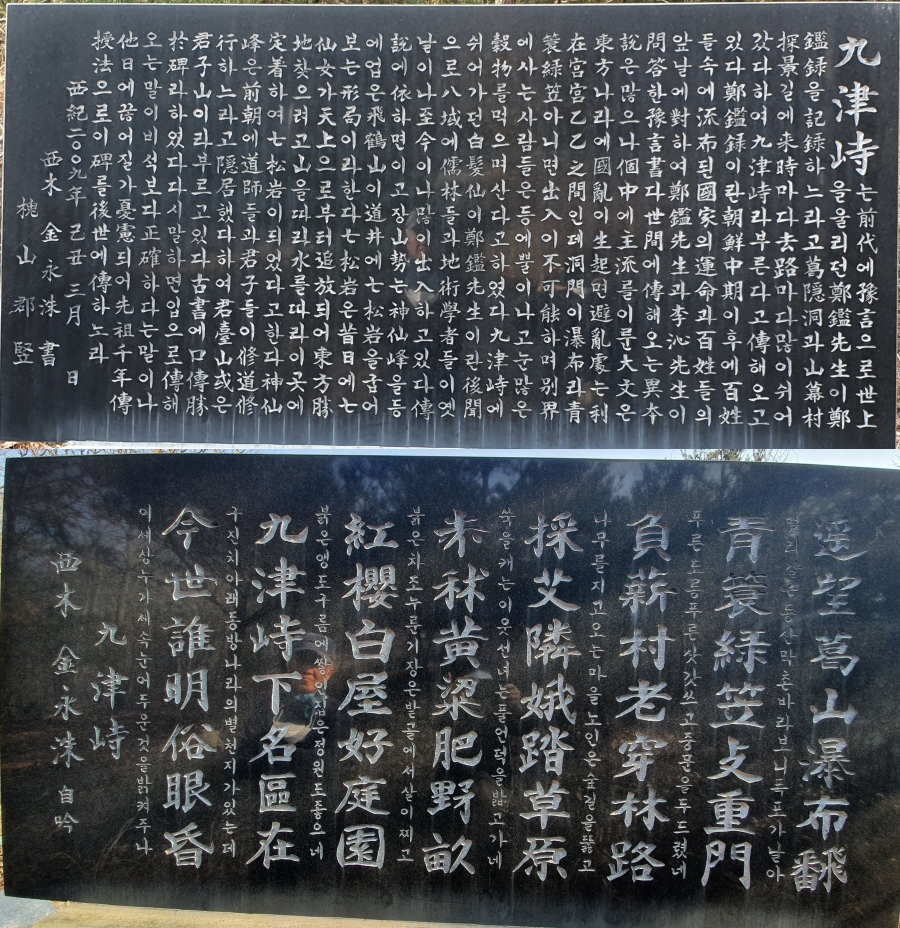 九津峙는 前代에 豫言으로 世上
을 울리던 鄭鑑先生이 鄭
鑑錄을 記錄하느라고 葛隱洞과 山幕村
探景길에 来時마다 去路마다 많이 쉬어
갔다하여 九津峙라 부른다고 傳해오고
있다 鄭鑑錄이란 朝鮮中期이후에 百姓
들속에 流布된 國家의 運命과 百姓들의
앞날에 對하여 鄭鑑先生과 李沁先生이
問答한 豫言書다 世間에 傳해오는 異本
說은 많으나 個中에 主流를 이룬 大文은
東方나라에 國亂이 生起면 避亂處는 利
在宮宮乙乙之間인데 洞門이 瀑布라 青
簑綠笠아니면 出入이 不可能하며 別界
에 사는 사람들은 등에 뿔이나고 눈많은
穀物를 먹으며 산다고 하였다 九津峙에
쉬어가던 白髮仙이 鄭鑑先生이란 後聞
으로 八域에 儒林들과 地術學者들이 옛
날이나 至今이나 많이 出入하고 있다 傳
說에 依하면 이고장 山勢는 神仙峰을 등
에 업은 飛鶴山이 道井에는 松岩을 굽어
보는 形局이라 한다 七松岩은 昔日에 七
仙女가 天上으로부터 追放되어 東方勝
地찾으려고 山을 따라 水를 따라 이곳에
定着하여 七松岩이 되었다고 한다 神仙
峰은 前朝에 道師들과 君子들이 修道修
行하느라고 隱居했다하여 君臺山 或은
君子山이라 부르고 있다 古書에 口傳勝
於碑라 하였다 다시 말하면 입으로 傳해
오는 말이 비석보다 正確하다는 말이나
他日에 끊어질가 憂慮되어 先祖千年傳
授法으로 이 碑를 後世에 傳하노라
西紀二00九年 己丑 三月 日
西木 金永洙 書
槐山郡 竪
遥望葛山瀑布飜
멀리 갈은동산 막촌 바라보니 폭포가 날아
青簑綠笠攴重門
푸른 도롱 푸른 삿갓쓰고 중문을 두드렸네
負薪村老穿林路
나무를 지고 오는 마을 노인은 숲길을 뚫고
採艾隣娥踏草原
쑥을 캐는 이웃 선녀는 풀언덕을 밟고가네
朱秫黃粱肥野畝
붉은 차조 누른 기장은 밭골에서 살이찌고
紅櫻白屋好庭園
붉은 앵도 수름에 쌓인 집은 정원도 좋으네
九津峙下名區在
구진치 아래 동방나라의 별천지가 있는데
今世誰明俗眼昏
이세상 누가 세속 눈어두운 것을 밝켜주나
九津峙
西木 金永洙 自吟